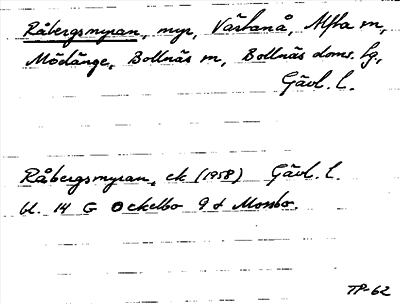 Råbergsmyran, myr, Västanå, Alfta sn,
Mödänge, Bollnäs sn, Bollnäs doms. hg,
Gävl. l.
Råbergsmyran, ek (1958) Gävl. l.
bl. 14 G Ockelbo 9 d Mossbo.
TP-62